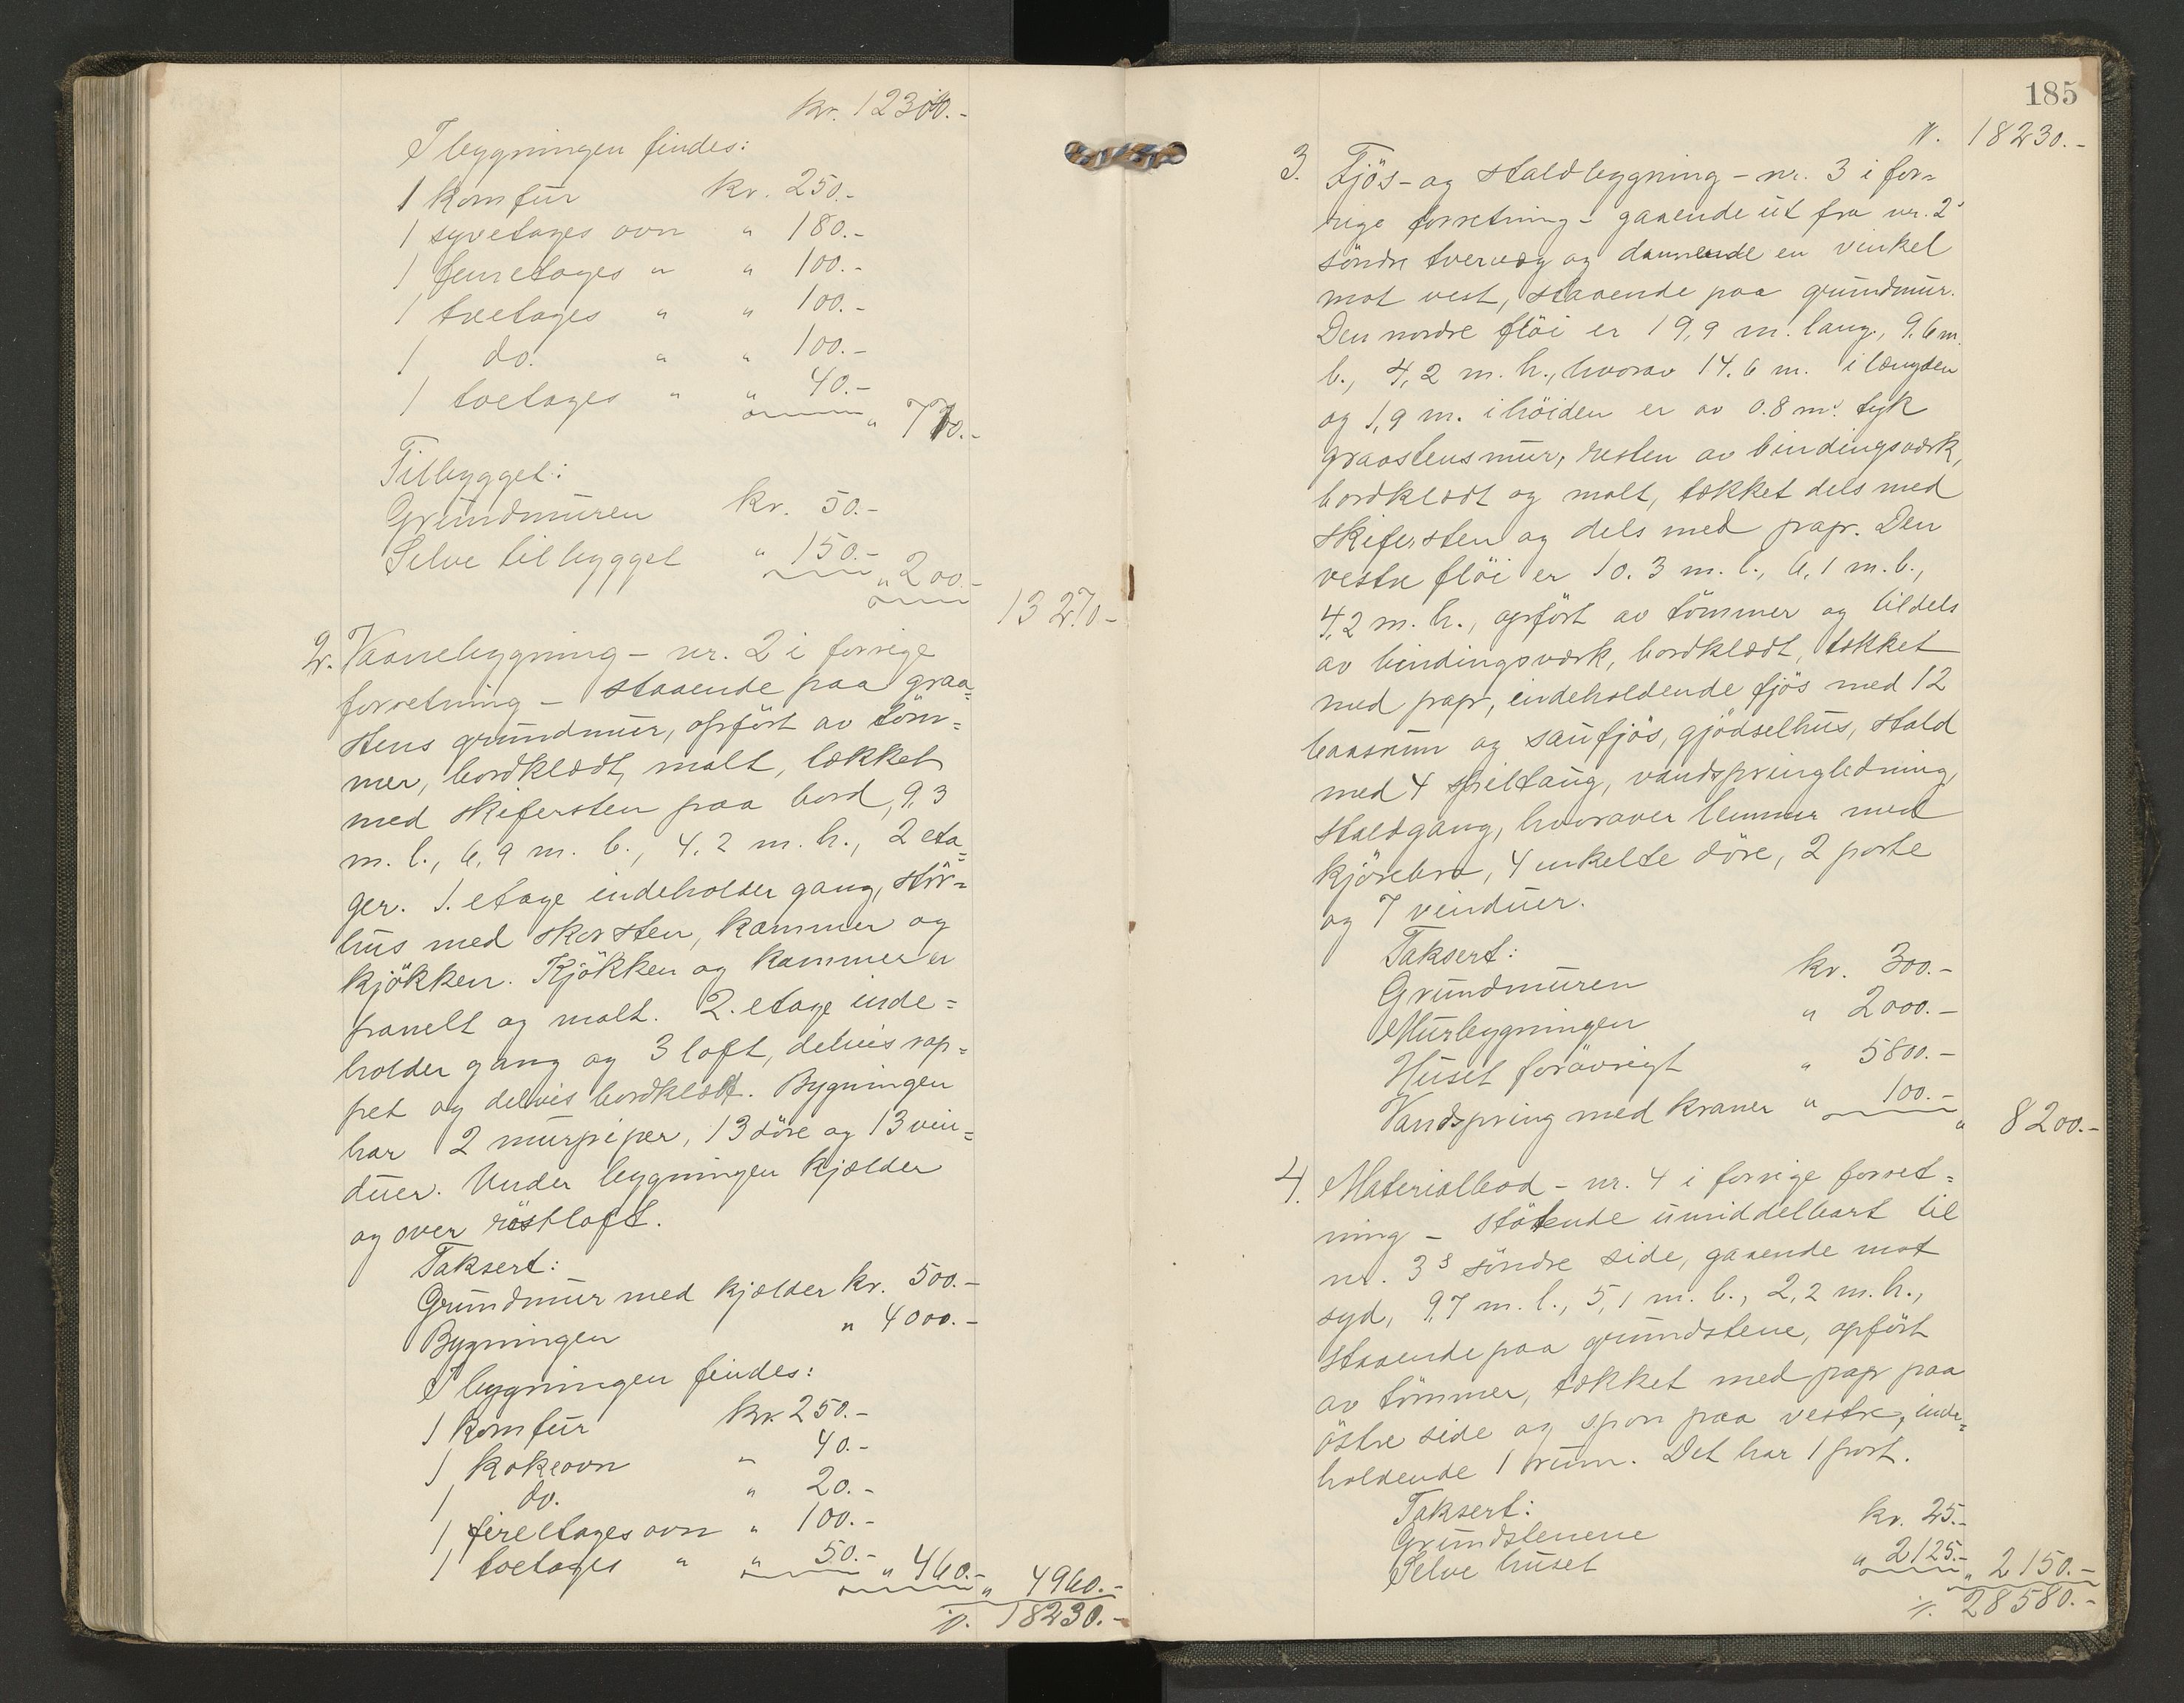 kr. 12300.-
I bygningen findes:
1 komfur kr. 250.-
1 syvetages ovn " 180.-
1 femetages " " 100.-
1 treetages " " 100.-
1 do. " " 100.-
1 toetages " " 40.-
" 770.-
Tilbygget:
Grundmuren kr. 50.-
Selve tilbygget " 150.-
" 200.-
13270.-
2. Vaanebygning - nr. 2 i forrige
forretning - staaende paa graa=
stens grundmur, opført av töm=
mer, bordklædt, malt, tækket
med skifersten paa bord, 9,3
m. l., 6,9 m. b., 4,2 m. h., 2 eta=
ger. 1. etage indeholder gang, stör=
hus med skorsten, kammer og
kjökken. Kjökken og kammer er
panelt og malt. 2. etage inde=
holder gang og 3 loft, delvis rap=
pet og delvis bordklædt. Bygningen
har 2 murpiper, 13 döre og 13 vin=
duer. Under bygningen kjælder
og over röstloft.
Taksert:
Grundmur med kjælder kr. 500.-
Bygningen " 4000.-
I bygningen findes:
1 komfur kr. 250.-
1 kokeovn " 40.-
1 do. " 20.-
1 fireetages ovn " 100.-
1 toetages " " 50.- " 460.-
" 4960.-
%. 18230.-
185
%. 18230.-
3. Fjös- og staldbygning - nr. 3 i for=
rige forretning - gaaende ut fra nr. 2s
söndre tvervæg og dannende en vinkel
mot vest, staaende paa grundmur.
Den nordre flöi er 19,9 m. lang, 9,6 m.
b., 4,2 m. h., hvorav 14,6 m. i længden
og 1,9 m. i höiden er av 0.8 m. tyk
graastensmur, resten av bindingsværk,
bordklædt og malt, tækket dels med
skifersten og dels med papr. Den
vestre flöi er 10.3 m. l., 6,1 m. b.,
4,2 m. h., opfört av tömmer og tildels
av bindingsværk, bordklædt, tækket
med papr, indeholdende fjös med 12
baasrum og saufjös, gjödselhus, stald
med 4 spiltaug, vandspringledning,
staldgang, hvorover lemmer med
kjörebro, 4 enkelte döre, 2 porte
og 7 vinduer.
Taksert:
Grundmuren kr. 300.-
Murbygningen " 2000.-
Huset forövrigt " 5800.-
Vandspring med kraner " 100.-
" 8200.-
4. Materialbod - nr. 4 i forrige forret=
ning - stötende umiddelbart til
nr. 3s söndre side, gaaende mot
syd, 9,7 m. l., 5,1 m. b., 2,2 m. h.,
staaende paa grundstene, opfört
av tömmer, tækket med papr paa
östre side og spon paa vestre, inde=
holdende 1 rum. Det har 1 port.
Taksert:
Grundstenene kr. 25.-
Selve huset " 2125.-
" 2150.-
%. 28580.-